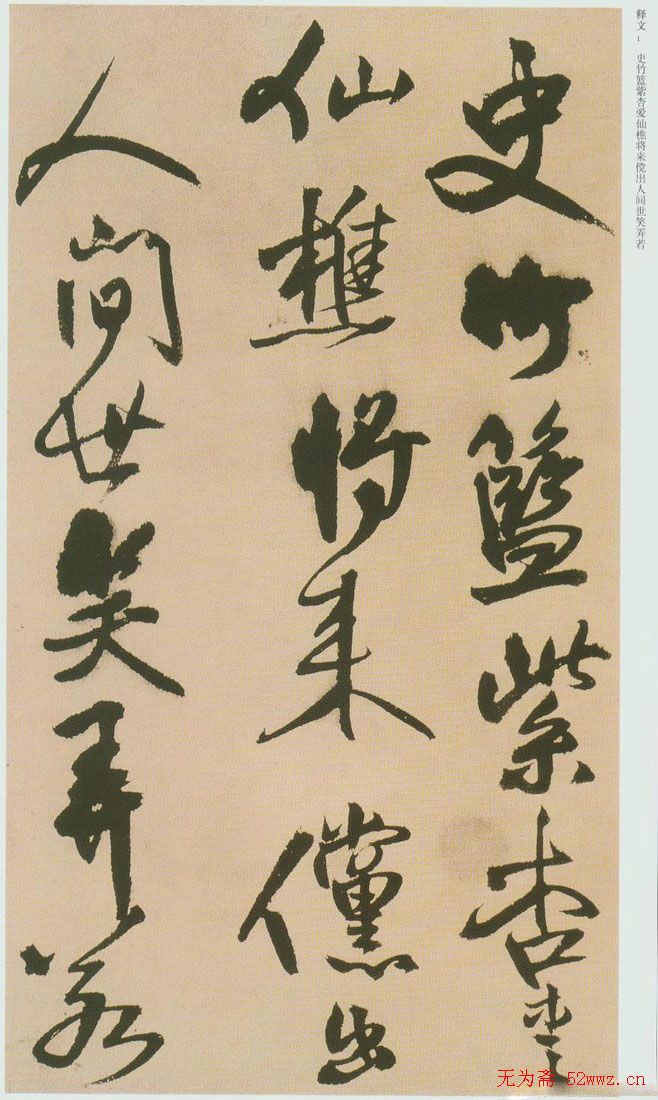 释文： 史竹篮紫杏爱仙樵将来傥出人间世笑弄若
史竹籃紫杏
仙樵將来儻出
人間世笑弄若
无为斋 52wwz.cn